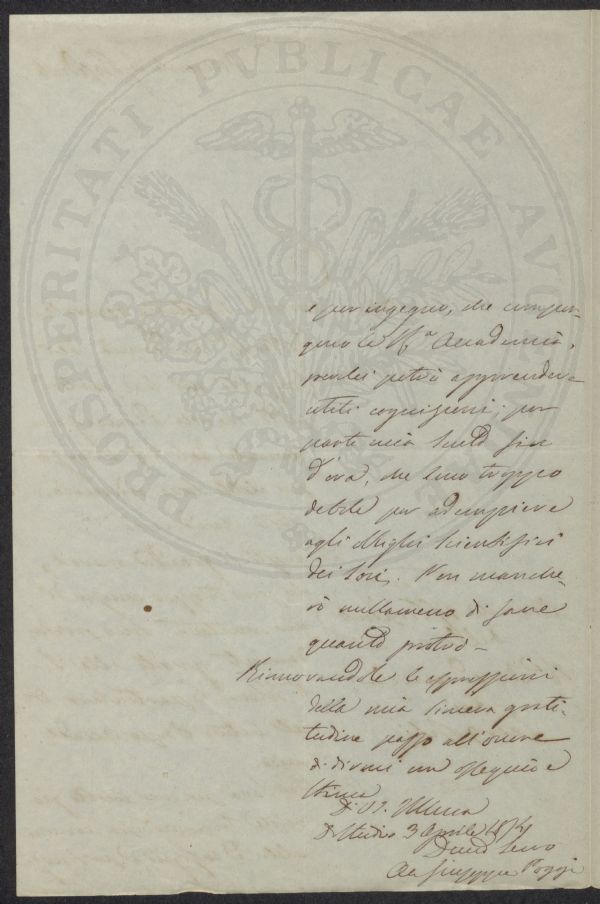 PROSPERITATI PUBLICAE AUGENDAE
e per ingegno, che compon-
gono la Accademia,
perchè potrò apprendere
utili cognizioni; per
parte mia sento fin
d'ora, che sono troppo
debole per adempiere
agli obblighi scientifici
dei Soci. Non manche-
rò nullameno di fare
quanto potrò -
Rinnovandole le espressioni
della mia sincera grati-
tudine passo all'onore
di dirmi con ossequio e
stima
Di V. S. Illma
3 Aprile 1874
Devmo Servo
Giuseppe Poggi